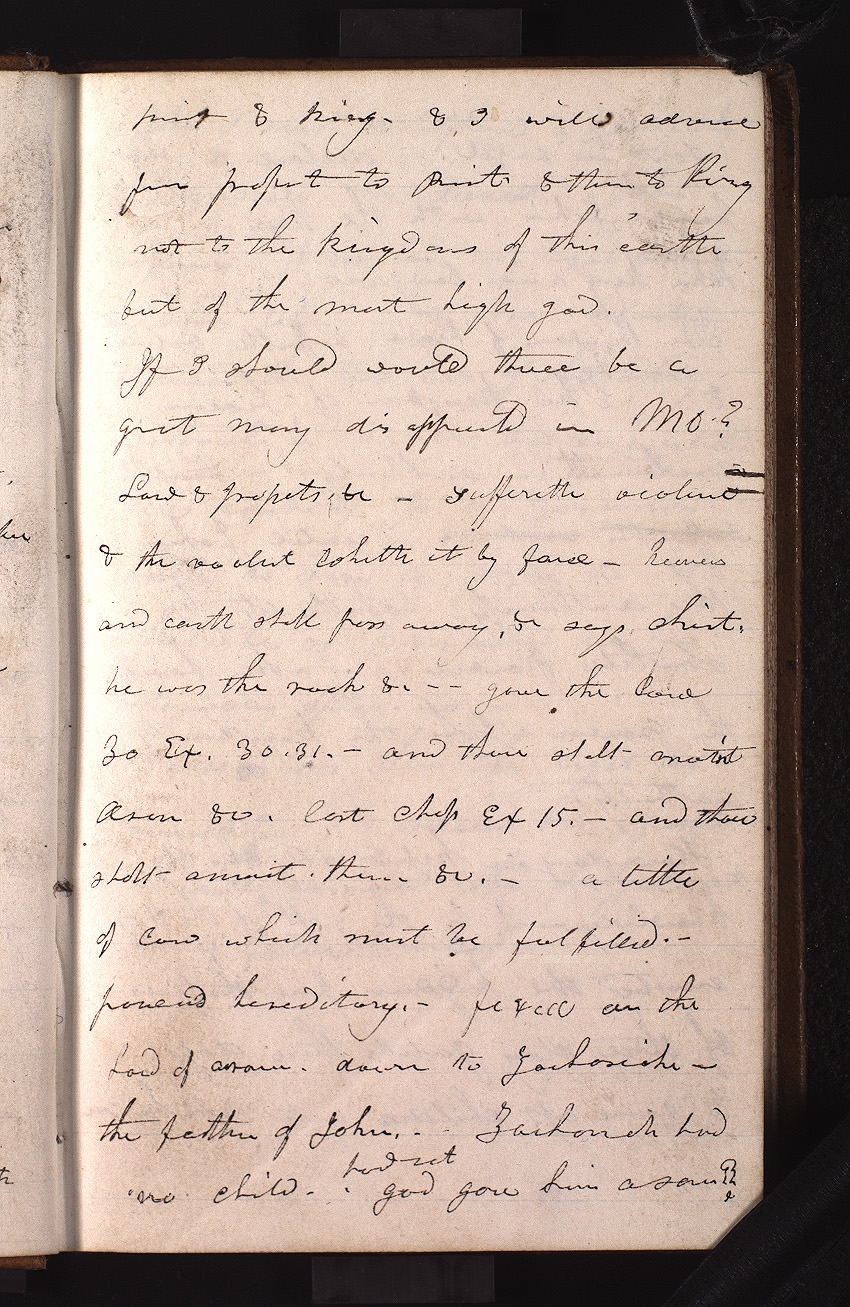 prist & King- & I will advance
from prophet to prist & then to King
not to the kingdoms of this earth
but of the most high god.
If I should would there be a
great many disappointed in Mo.?
Law & prophets, &c — suffereth violence
& the violent taketh it by force — heavens
and earth shall pass away, &c says christ.
he was the rock &c — — gave the law
30 Ex. 30.31. — and thou shalt anoint
Aron &c. last chap Ex 15. — and thou
shalt anoint them &c. — a tittle
of law which must be fulfilled. —
forever hereditary. — fixed on the
head of Aaron. down to Zachariah —
the father of John. - - Zachariah had
no child. - had not god gave him a son?